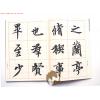 之蘭亭
脩稧事
也羣賢
畢至少